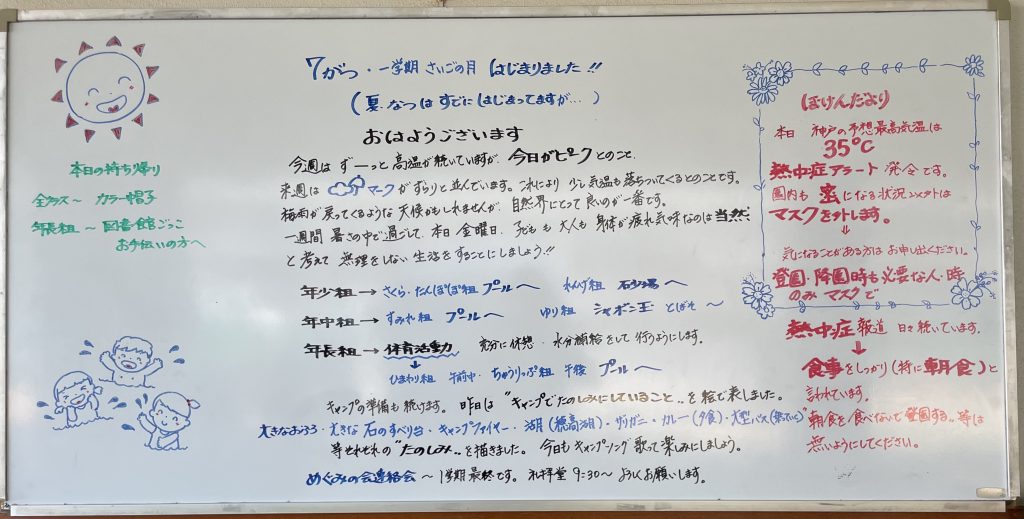 7がつ・一学期 さいごの月 はじまりました!!
(夏.なつは すでに はじまってますが…)
おはようございます
今週は ずーっと 高温が続いていますが、今日がピークとのこと.
来週は マークがずらりと並んでいます。これにより 少し気温も落ちついてくるとのことです。
梅雨が戻ってくるような 天候かもしれませんが、自然界にとって良いのが一番です。
一週間 暑さの中で過ごして、本日 金曜日. 子どもも 大人も 身体が疲れ気味なのは 当然.
と考えて 無理をしない 生活をすることにしましょう!!
年少組 → さくら・たんぽぽ組 プールへ れんげ組 石砂場へ
年中組 → すみれ組 プールへ ゆり組 シャボン玉 とばそ ~
年長組 → 体育活動 充分に休憩・水分補給をして 行うようにします。
ひまわり組 午前中・ちゅうりっぷ組 午後 プールへ
キャンプの準備も 続けます. 昨日は "キャンプでたのしみにしていること" を 絵で表しました。
大きなおふろ・大きな 石のすべり台・キャンプファイヤー・湖(穂高湖)・ザリガニ・カレー(夕食)・大型バス
等 それぞれの "たのしみ" を描きました。 今日も キャンプソング 歌って 楽しみにしましょう。
めぐみの会連絡会 ~ 1学期最終です。 礼拝堂 9:30~ よろしくお願いします。
本日の持ち帰り
全クラス~ カラー帽子
年長組 ~ 図書館ごっこ
お手伝いの方へ
ほけんだより
本日 神戸の予想最高気温は
35℃
熱中症アラート 発令です。
園内も 密になる状況 以外は
マスクを外します。
気になることがある方は お申し出ください。
登園・降園時も 必要な人・時
のみ マスクで
熱中症 報道 日々 続いています.
食事をしっかり(特に朝食)と
言われています.
"朝食を食べないで 登園する" 等は
無いようにしてください。